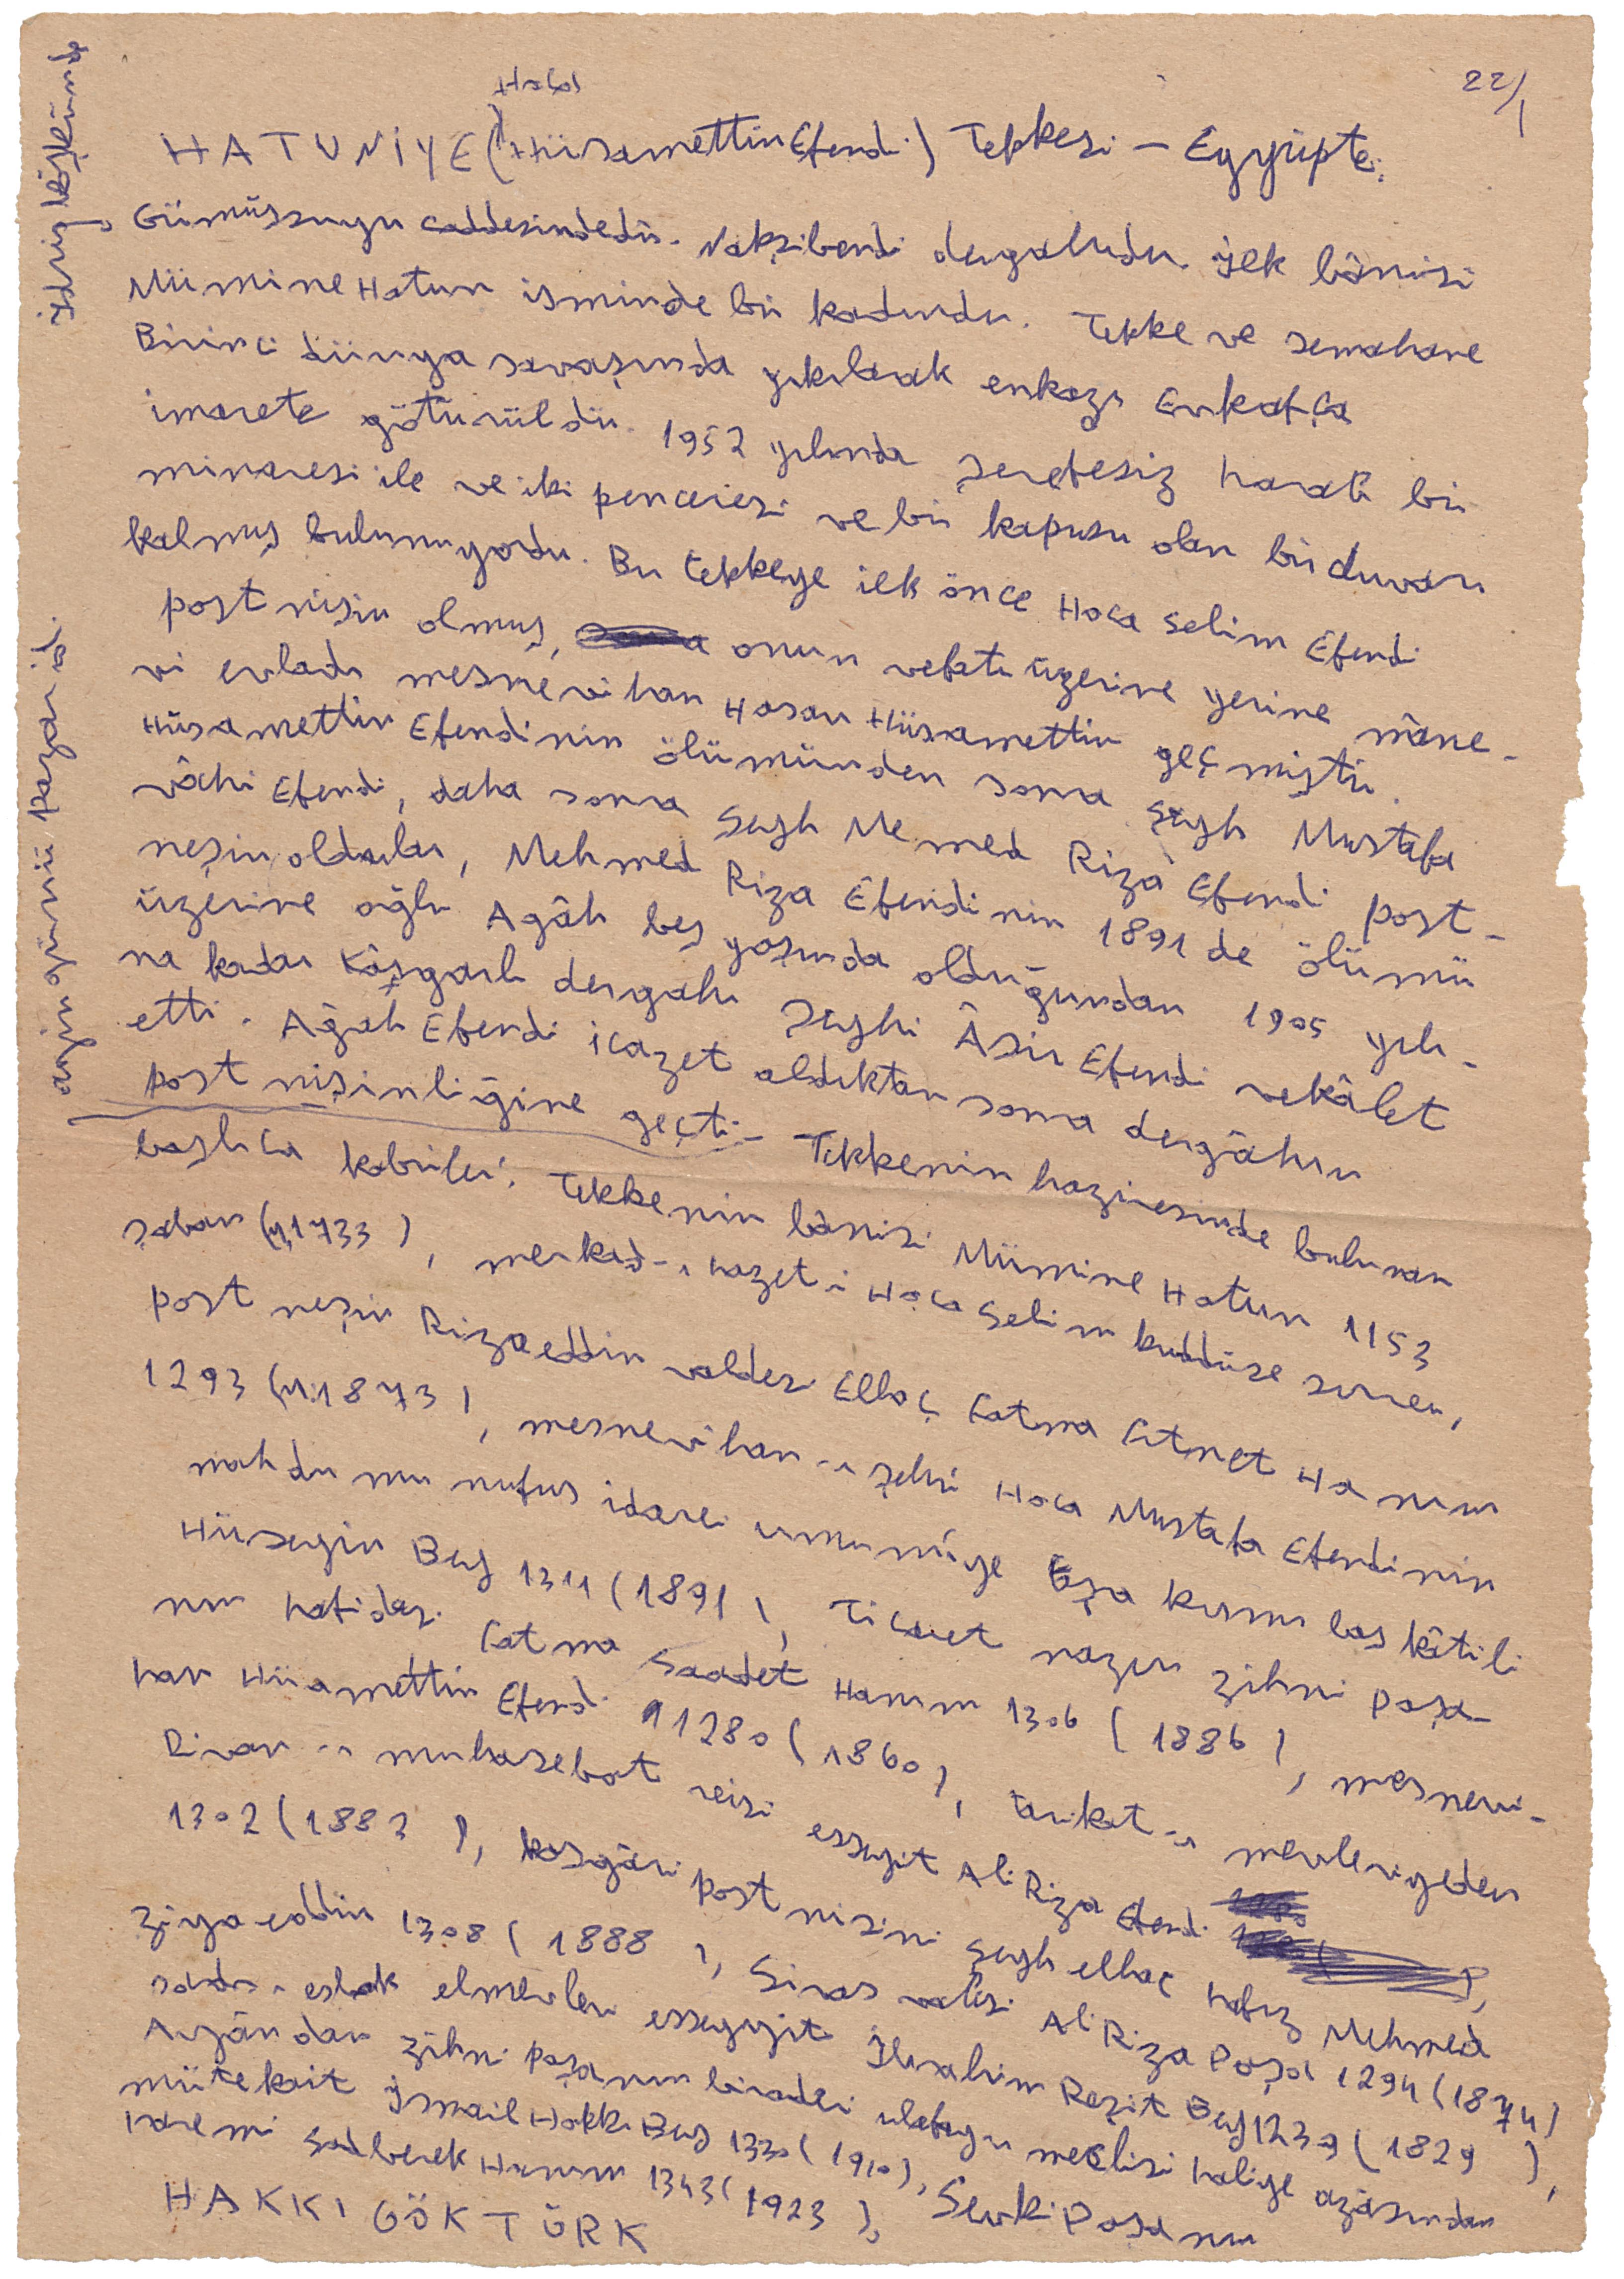 22/1
Hoca
HATUNİYE (Hüsamettin Efendi) Tekkesi – Eyyüpte,
Gümüşsuyu caddesindedir. Nakşibendi dergahıdır. İlk bânisi
Mümine Hatun isminde bir kadındır. Tekke ve semahane
Birinci dünya savaşında yıkılarak enkazı Evkafça
imarete götürüldü. 1952 yılında şerefesiz harab bir
minaresi ile ve iki penceresi ve bir kapusu olan bir duvarı
kalmış bulunuyordu. Bu tekkeye ilk önce Hoca Selim Efendi
post nişin olmuş, onun vefatı üzerine yerine mâne-
vi evladı mesnevihan Hasan Hüsamettin geçmiştir.
Hüsamettin Efendinin ölümünden sonra Şeyh Mustafa
vâhi Efendi, daha sonra Şeyh Memed Riza Efendi post-
neşin oldular, Mehmed Riza Efendinin 1891 de ölümü
üzerine oğlu Agâh beş yaşında olduğundan 1905 yılı-
na kadar Kâşgarlı dergahı Şeyhi Âsir Efendi vekâlet
etti. Agâh Efendi icazet aldıktan sonra dergâhın
post nişinliğine geçti – Tekkenin haziresinde bulunan
başlıca kabirler: Tekkenin bânisi Mümine Hatun 1153
şaban (M.1733), merkad-ı hazret-i Hoca Selim kuddise sırren,
post neşin Rizaeddin valdesi Elhaç Fatma Fitnet Hanım
1293 (M.1873), mesnevihan-ı şehri Hoca Mustafa Efendinin
mahdumu nufus idarei umumiye Eşa kısmı baş kâtibi
Hüseyin Bey 1311 (1891), Ticaret nazırı Zihni Paşa-
nın hafidesi Fatma Saadet Hanım 1306 (1886), mesnevi-
han Hüsamettin Efendi 1280 (1860), tarikat-ı mevleviyeden
Divan-ı muhasebat reisi esseyit Ali Riza Efendi
1302 (1883), kaşgâri post nişini Şeyh elhaç hafız Mehmed
Ziyaeddin 1308 (1888), Sivas valisi Ali Riza Paşa 1294 (1874)
sadr-ı esbak elmevlevi esseyyit İbrahim Reşit Bey 1239 (1829),
Ayândan Zihni paşanın biraderi meclisi maliye azâsından
mütekait İsmail Hakkı Bey 1330 (1910), Şevki Paşanın
haremi Sadberek Hanım 1343 (1923),
HAKKI GÖKTÜRK
ayin günü Pazar idi.
İdris köşkünde